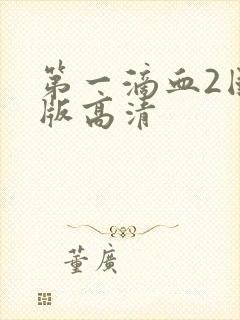 第一滴血2国
版高清
董廣